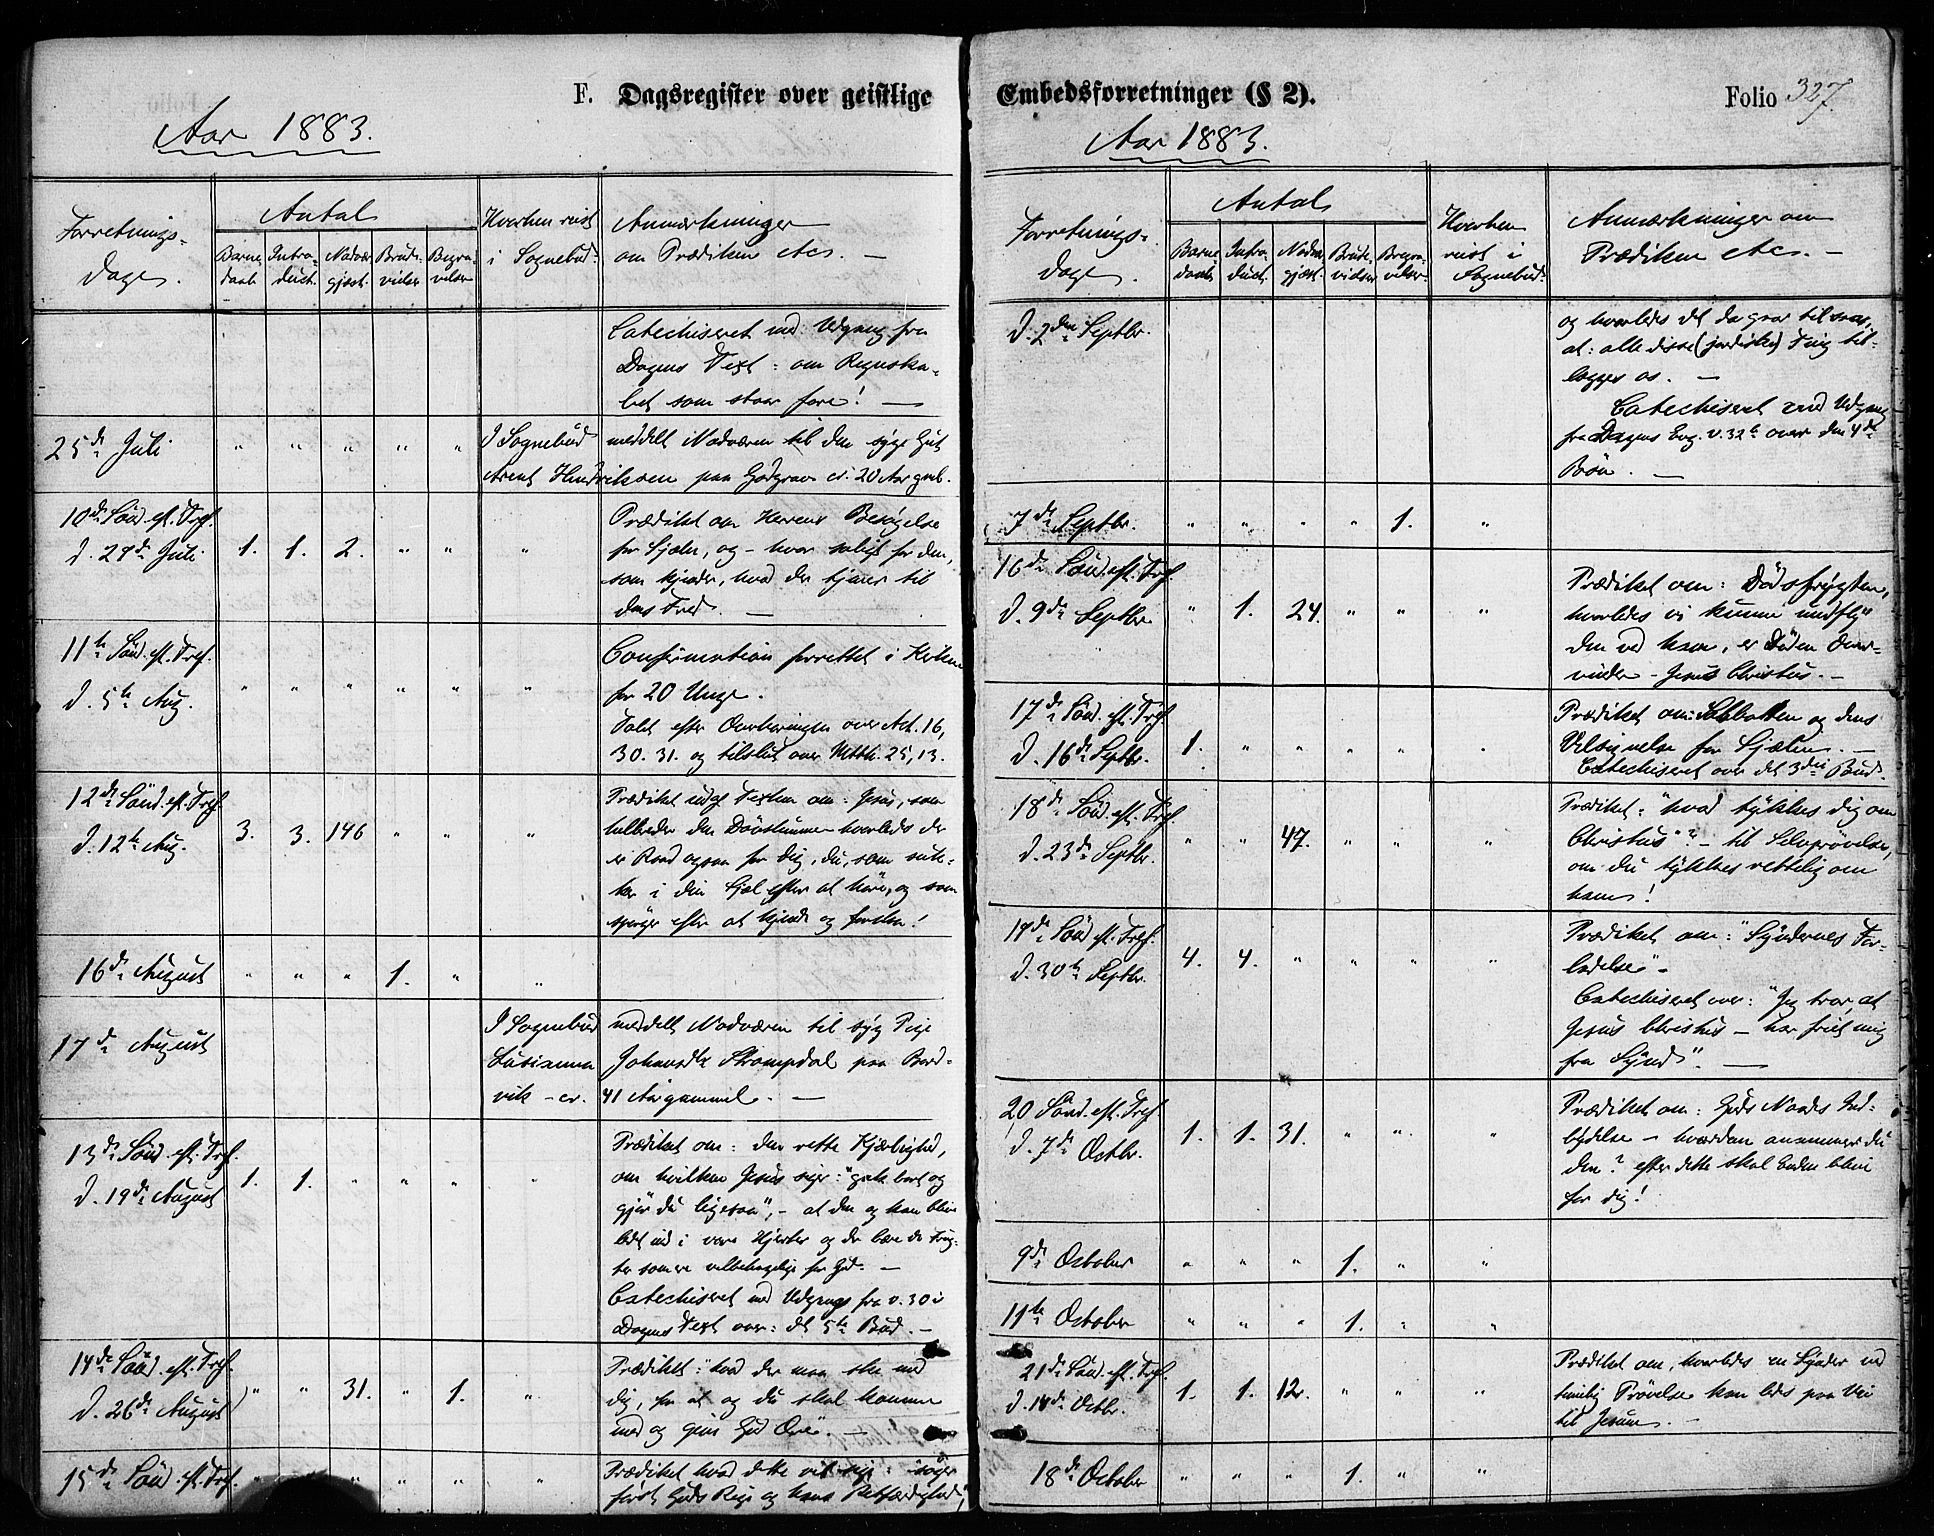 F. Dagsregister over geistlige
Aar 1883.
Forretnings-
Dage.
Antal
Barne
daab
Intro-
duct.
Nadver
gjæst.
Brude-
vielser
Begra-
velser
Hvorhen reist
i Sognebud.
Anmærkninger
om Prædiken etc. —
Catechiseret med Udgang fra
Dagens Text: om Regnska-
bet som staar fore! —
25de Juli " " " " " I Sognebud meddelt Nadveren til den syge Gut
Arent Hendriksen paa Godgrav cr. 20 Aar gml.
10de Sönd. eft. Tref.
d. 29de Juli 1. 1. 2. " " "
Prædiket om Herrens Besøgelse
for Sjælen, og - hvor saligt for den,
som kjender, hvad der tjener til
dens Fred —
11te Sönd. eft. Tref.
d. 5te Aug. " " " " " "
Confirmation forrettet i Kirken
for 20 Unge.
Talet efter Overhøringen over Act. 16,
30. 31. og tilslut over Matth. 25, 13.
12te Sönd. eft. Tref.
d. 12te Aug. 3. 3. 146 " " "
Prædiket udaf Texten om: Jesus, som
helbreder den Døvstumme hvorledes der
er Raad ogsaa for dig, du, som suk-
ker i din Sjæl efter at høre, og som
spörger efter at kjende og forstaa!
16de August " " " 1. " "
17de August I Sognebud meddelt Nadveren til syg Pige
Lusianna Johansdtr Strompdal paa Bord-
vik - cr. 41 Aar gammel. —
13de Sönd. eft. Tref.
d. 19de August 1. 1. " " " "
Prædiket om: den rette Kjærlighed,
om hvilken Jesus siger: "gak bort og
gjør du ligesaa", - at den og kan blive
ledt ud i vore Hjerter og der bære de Frug-
ter som ere velbehagelige for Gud. —
Catechiseret med Udgang fra v. 30 i
Dagens Text over: det 5te Bud. —
14de Sönd. eft. Tref.
d. 26de August " " 31. " 1. "
Prædiket: "hvad der maa ske med
dig, for at og du skal komme
med og give Gud Ære. —
15de Sönd. eft. Tref. " " " " "
Prædiket hvad dette vil sige: "søger
først Guds Rige og hans Retfærdighed",
Embedsforretninger (§ 2).
Folio 327.
Aar 1883.
Forretnings-
dage.
Antal
Barne
daab
Intro-
duct.
Nadver
gjæst.
Brude-
vielser
Begra-
velser
Hvorhen
reist i
Sognebud.
Anmærkninger om
Prædiken etc. —
d. 2den Septbr.
og hvorledes det da gaar til svar,
at: alle disse (jordiske) Ting til-
lægges os. —
Catechiseret med Udgang
fra Dagens Evg. v. 32te over den 4de
Bön. —
7de Septbr. " " " " 1. "
16de Sönd. eft. Tref.
d. 9de Septbr. " 1. 24. " " "
Prædiket om: Dødsfrygten,
hvorledes vi kunne undfly
den ved ham, er Døden Over-
vinder - Jesus Christus. —
17de Sönd. eft. Tref.
d. 16de Septbr. 1. " " " " "
Prædiket om: Sabbatten og dens
Velsignelse for Sjælen. —
Catechiseret over det 3die Bud.
18de Sönd. eft. Tref.
d. 23de Septbr. " " 47. " " "
Prædiket: "hvad tykkes dig om
Christus"? - til Selvprøvelse,
om du tykkes rettelig om
ham!
19de Sönd. eft. Tref.
d. 30te Septbr. 4. 4. " " " "
Prædiket om: "Syndernes For-
ladelse" -
Catechiseret over: "Jeg tror, at
Jesus Christus - har friet mig
fra Synd". —
20 Sönd. eft. Tref.
d. 7de Octbr. 1. 1. 31. " " "
Prædiket om: Guds Naades Ind-
bydelse - hvordan anammer du
den? efter dette skal Enden blive
for dig!
9de October " " " 1. " "
11te October " " " 1. " "
21de Sönd. eft. Tref.
d. 14de Octbr. 1. 1. 12. " " "
Prædiket om, hvorledes en Synder ved
timelig Prøvelse kan leds paa Vei
til Jesum. —
18de October " " " 1. " "